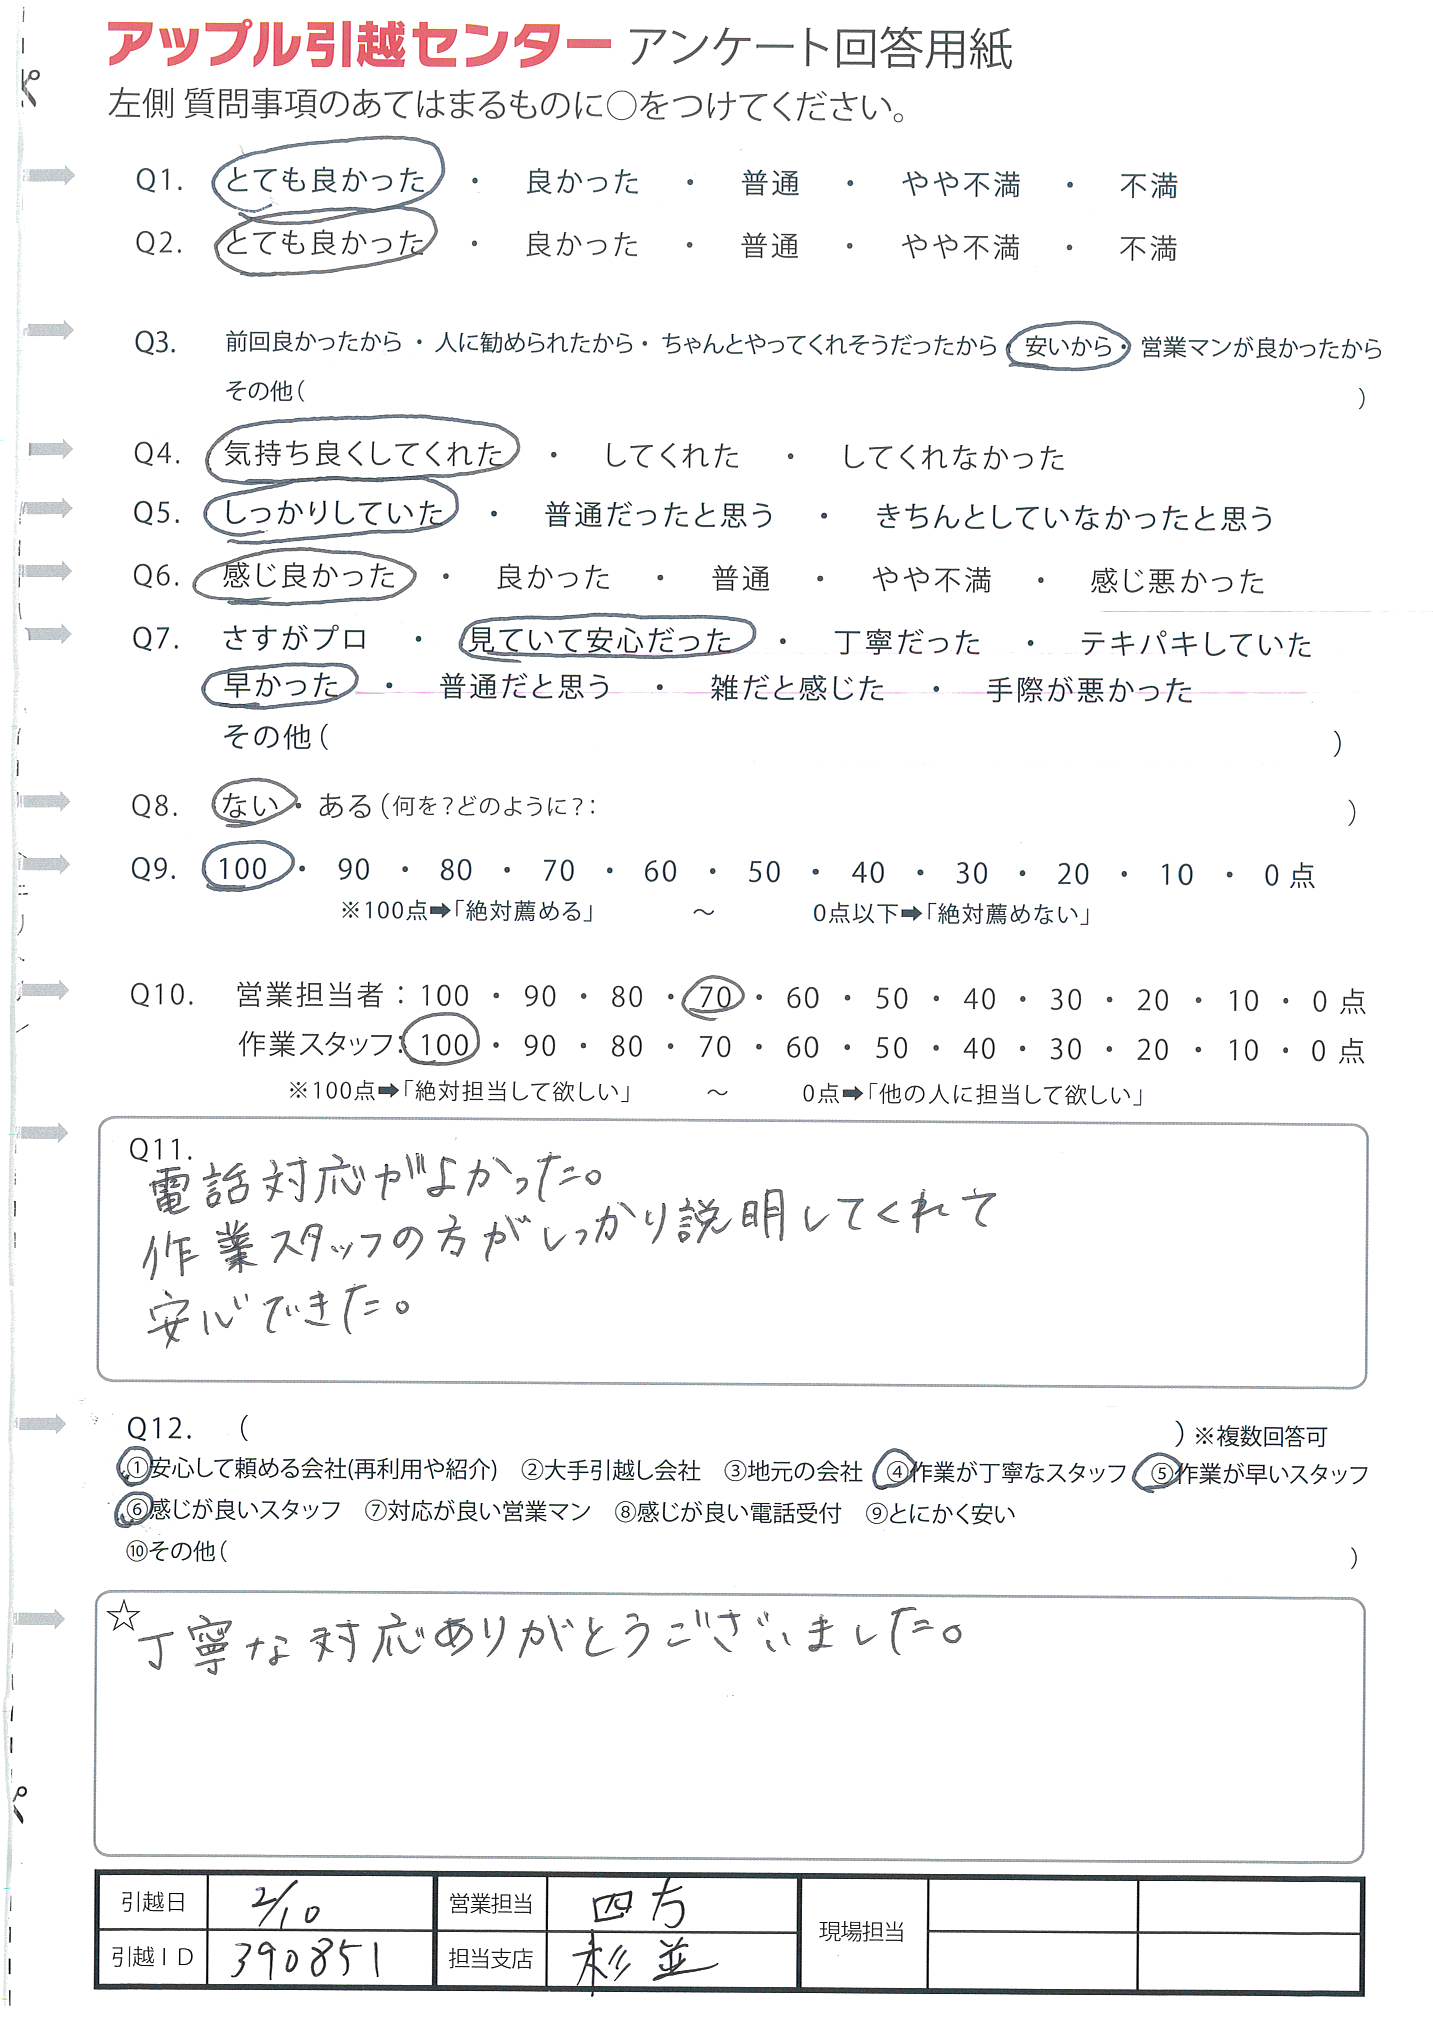 アップル引越センター アンケート回答用紙
左側 質問事項のあてはまるものに○をつけてください。
Q1. とても良かった ・ 良かった ・ 普通 ・ やや不満 ・ 不満
Q2. とても良かった ・ 良かった ・ 普通 ・ やや不満 ・ 不満
Q3. 前回良かったから ・ 人に勧められたから ・ ちゃんとやってくれそうだったから ・ 安いから ・ 営業マンが良かったから
その他( )
Q4. 気持ち良くしてくれた ・ してくれた ・ してくれなかった
Q5. しっかりしていた ・ 普通だったと思う ・ きちんとしていなかったと思う
Q6. 感じ良かった ・ 良かった ・ 普通 ・ やや不満 ・ 感じ悪かった
Q7. さすがプロ ・ 見ていて安心だった ・ 丁寧だった ・ テキパキしていた
早かった ・ 普通だと思う ・ 雑だと感じた ・ 手際が悪かった
その他( )
Q8. ない ・ ある(何を?どのように?: )
Q9. 100 ・ 90 ・ 80 ・ 70 ・ 60 ・ 50 ・ 40 ・ 30 ・ 20 ・ 10 ・ 0点
※100点➡「絶対薦める」 ～ 0点以下➡「絶対薦めない」
Q10. 営業担当者：100 ・ 90 ・ 80 ・ 70 ・ 60 ・ 50 ・ 40 ・ 30 ・ 20 ・ 10 ・ 0点
作業スタッフ：100 ・ 90 ・ 80 ・ 70 ・ 60 ・ 50 ・ 40 ・ 30 ・ 20 ・ 10 ・ 0点
※100点➡「絶対担当して欲しい」 ～ 0点➡「他の人に担当して欲しい」
Q11.
電話対応がよかった。
作業スタッフの方がしっかり説明してくれて
安心できた。
Q12. ( ) ※複数回答可
①安心して頼める会社(再利用や紹介) ②大手引越し会社 ③地元の会社 ④作業が丁寧なスタッフ ⑤作業が早いスタッフ
⑥感じが良いスタッフ ⑦対応が良い営業マン ⑧感じが良い電話受付 ⑨とにかく安い
⑩その他( )
☆丁寧な対応ありがとうございました。
引越日 2/10 営業担当 四方 現場担当
引越ID 390851 担当支店 杉並